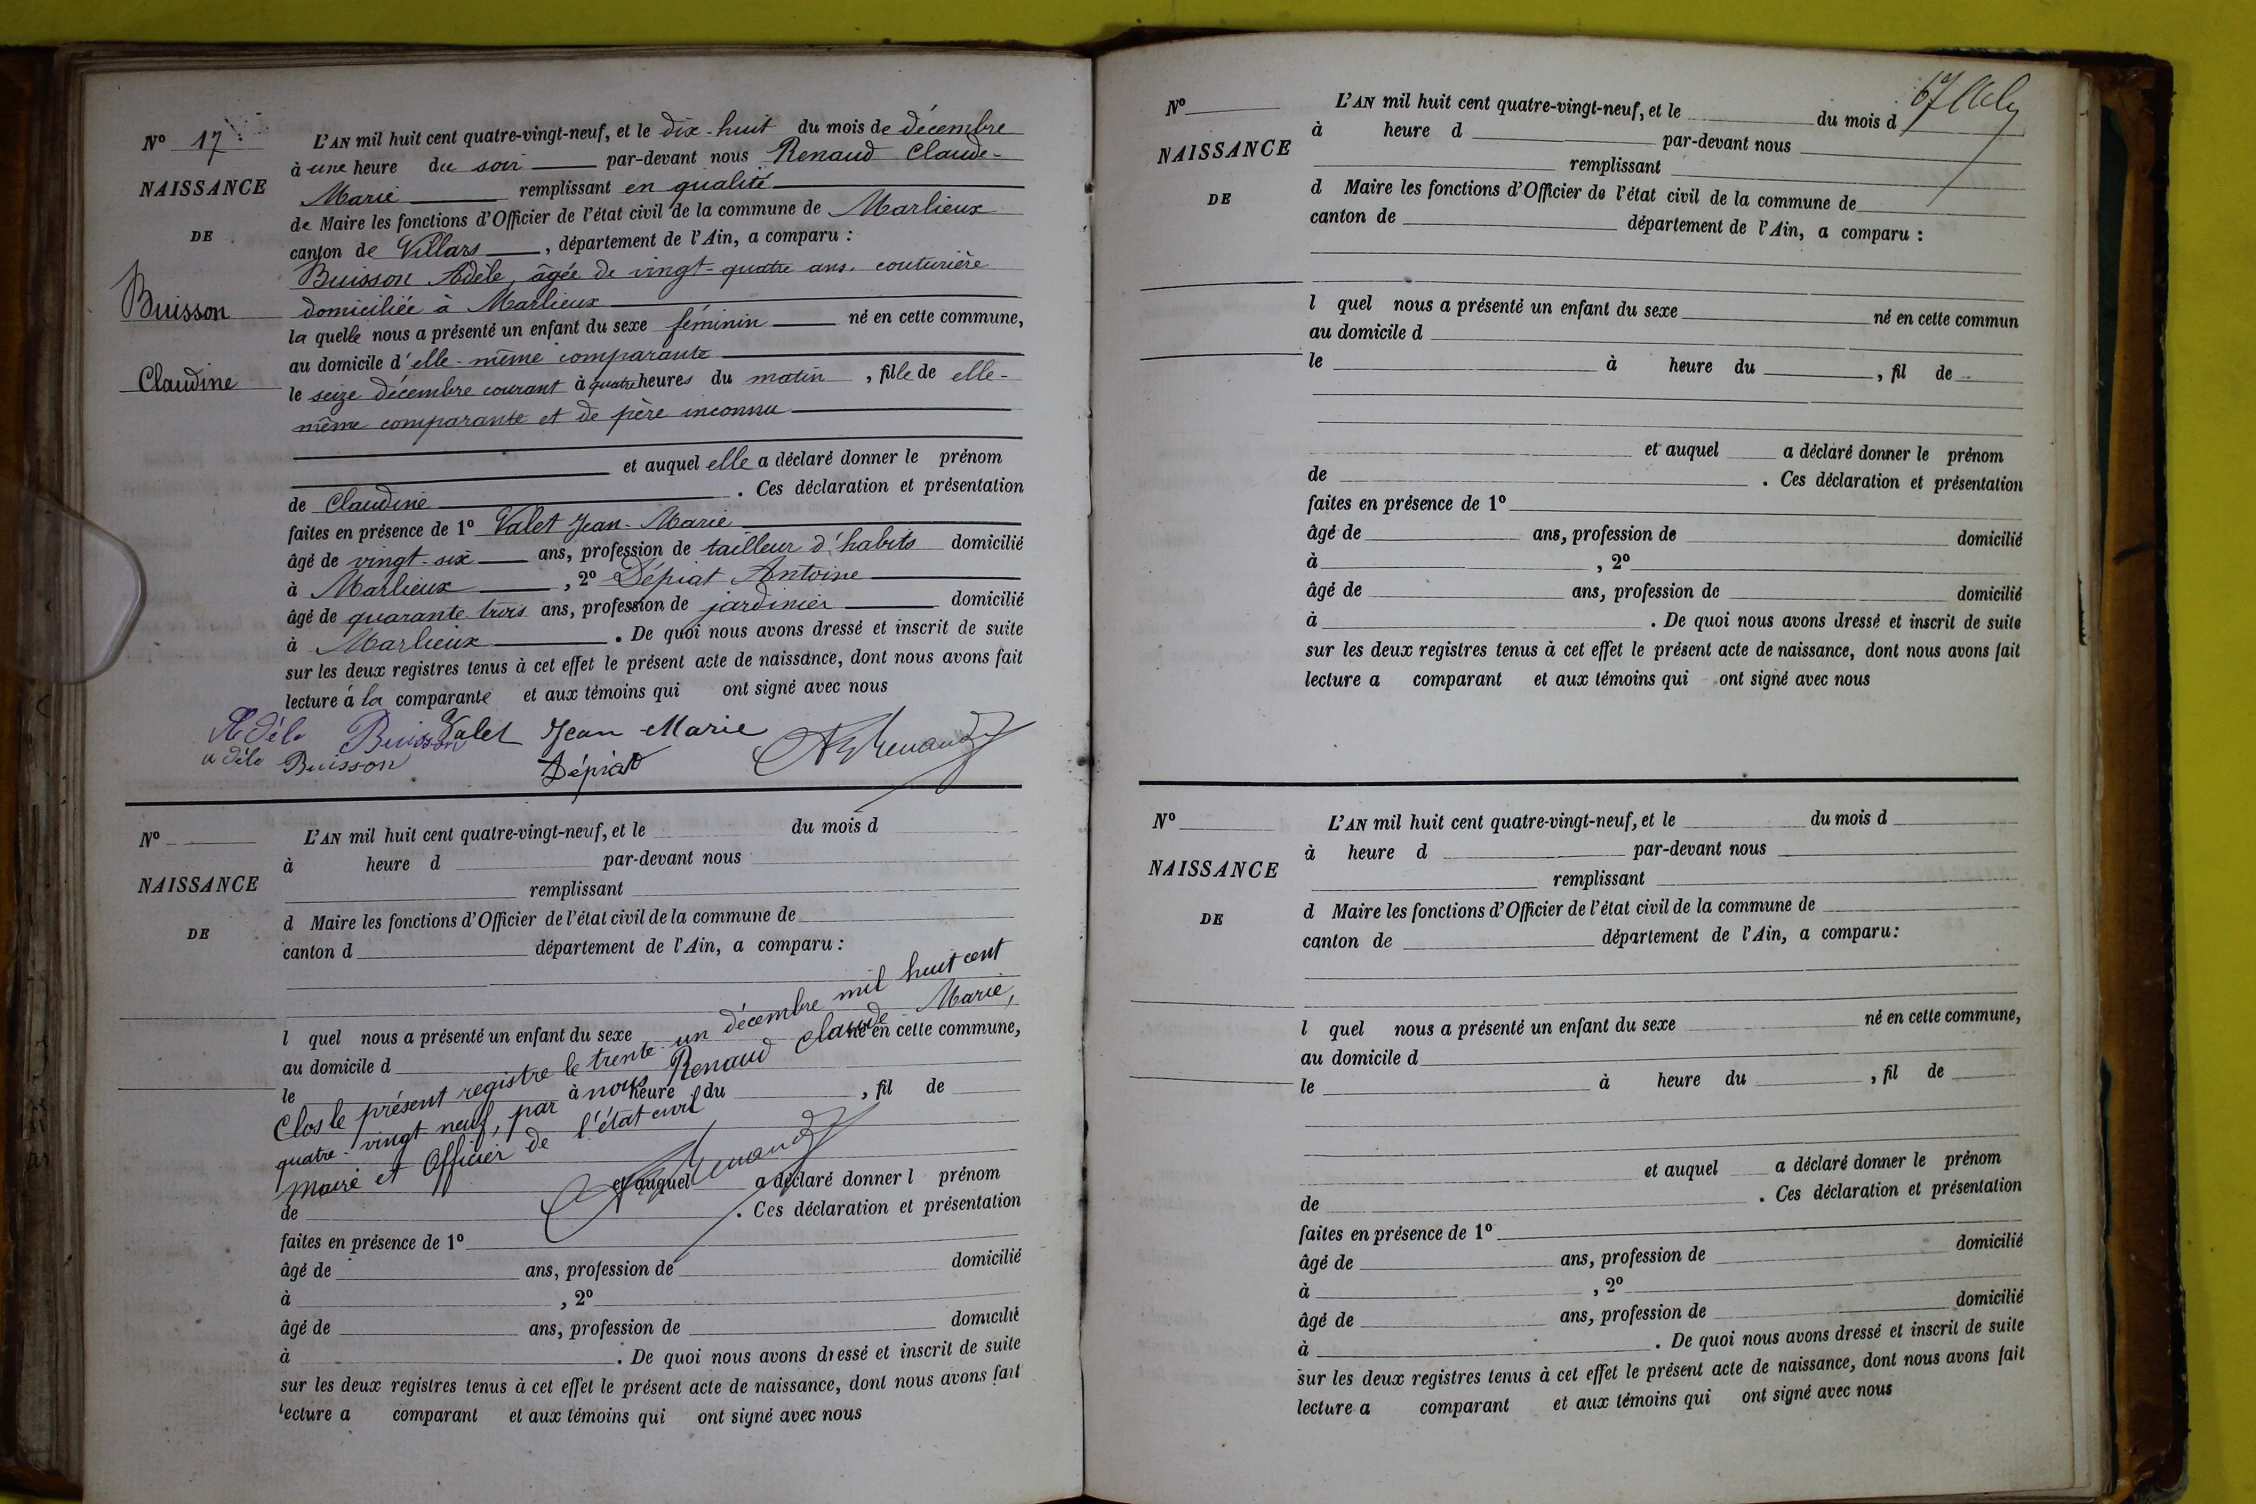 N° 17
NAISSANCE
DE
Buisson
Claudine
L'AN mil huit cent quatre-vingt-neuf, et le dix-huit du mois de décembre
à une heure du soir par-devant nous Renaud Claude-
Marie remplissant en qualité
de Maire les fonctions d'Officier de l'état civil de la commune de Marlieux
canton de Villars, département de l'Ain, a comparu :
Buisson Adèle, âgée de vingt-quatre ans, couturière
domiciliée à Marlieux
la quelle nous a présenté un enfant du sexe féminin né en cette commune,
au domicile d'elle-même comparante
le seize décembre courant à quatre heures du matin, fille de elle-
même comparante et de père inconnu
et auquel elle a déclaré donner le prénom
de Claudine. Ces déclaration et présentation
faites en présence de 1° Valet Jean-Marie
âgé de vingt-six ans, profession de tailleur d'habits domicilié
à Marlieux, 2° Dépiat Antoine
âgé de quarante trois ans, profession de jardinier domicilié
à Marlieux. De quoi nous avons dressé et inscrit de suite
sur les deux registres tenus à cet effet le présent acte de naissance, dont nous avons fait
lecture à la comparante et aux témoins qui ont signé avec nous
Adèle Buisson Valet Jean Marie Renaud
adèle Buisson Dépiat
N°
NAISSANCE
DE
L'AN mil huit cent quatre-vingt-neuf, et le du mois d
à heure d par-devant nous
remplissant
d Maire les fonctions d'Officier de l'état civil de la commune de
canton d département de l'Ain, a comparu :
l quel nous a présenté un enfant du sexe né en cette commune,
au domicile d
le à heure du , fil de
Clos le présent registre le trente-un décembre mil huit cent
quatre-vingt neuf, par nous Renaud Claude Marie,
maire et Officier de l'état civil
Renaud
et auquel a déclaré donner l prénom
de . Ces déclaration et présentation
faites en présence de 1°
âgé de ans, profession de domicilié
à , 2°
âgé de ans, profession de domicilié
à . De quoi nous avons dressé et inscrit de suite
sur les deux registres tenus à cet effet le présent acte de naissance, dont nous avons fait
lecture a comparant et aux témoins qui ont signé avec nous
67
N°
NAISSANCE
DE
L'AN mil huit cent quatre-vingt-neuf, et le du mois d
à heure d par-devant nous
remplissant
d Maire les fonctions d'Officier de l'état civil de la commune de
canton de département de l'Ain, a comparu :
l quel nous a présenté un enfant du sexe né en cette commun
au domicile d
le à heure du , fil de
et auquel a déclaré donner le prénom
de . Ces déclaration et présentation
faites en présence de 1°
âgé de ans, profession de domicilié
à , 2°
âgé de ans, profession de domicilié
à . De quoi nous avons dressé et inscrit de suite
sur les deux registres tenus à cet effet le présent acte de naissance, dont nous avons fait
lecture a comparant et aux témoins qui ont signé avec nous
N°
NAISSANCE
DE
L'AN mil huit cent quatre-vingt-neuf, et le du mois d
à heure d par-devant nous
remplissant
d Maire les fonctions d'Officier de l'état civil de la commune de
canton de département de l'Ain, a comparu :
l quel nous a présenté un enfant du sexe né en cette commune,
au domicile d
le à heure du , fil de
et auquel a déclaré donner le prénom
de . Ces déclaration et présentation
faites en présence de 1°
âgé de ans, profession de domicilié
à , 2°
âgé de ans, profession de domicilié
à . De quoi nous avons dressé et inscrit de suite
sur les deux registres tenus à cet effet le présent acte de naissance, dont nous avons fait
lecture a comparant et aux témoins qui ont signé avec nous